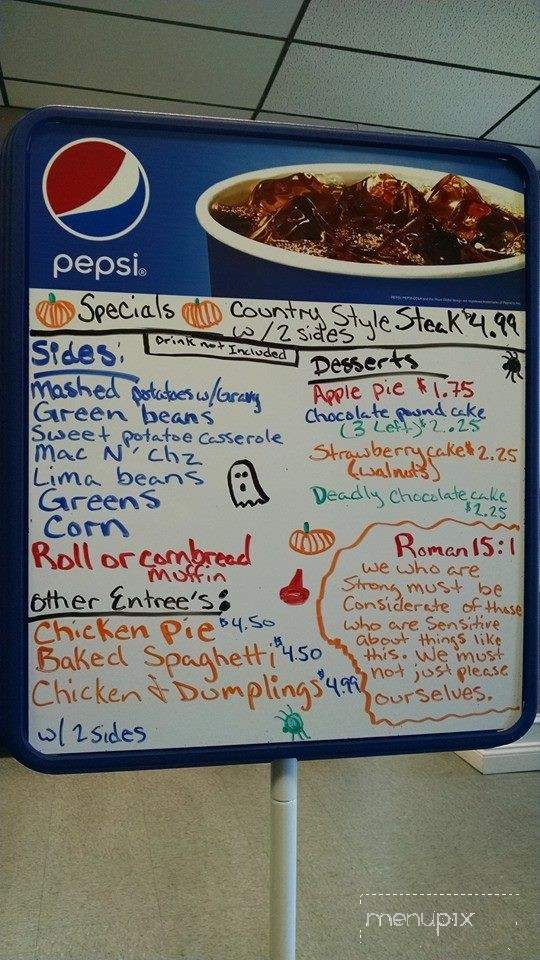 pepsi®
Specials
Country Style Steak $4.99
w/2 sides
Drink not Included
Sides:
Mashed potatoes w/Gravy
Green beans
Sweet potatoe casserole
Mac N' Chz
Lima beans
Greens
Corn
Roll or cornbread
muffin
other Entree's:
Chicken Pie $4.50
Baked Spaghetti $4.50
Chicken & Dumplings $4.99
w/ 2 sides
Desserts
Apple pie $1.75
Chocolate pound cake
(3 Left) $2.25
Strawberry cake $2.25
(walnuts)
Deadly Chocolate cake
$2.25
Roman 15:1
we who are
Strong must be
Considerate of those
who are Sensitive
about things like
this. We must
not just please
ourselves.
menupix